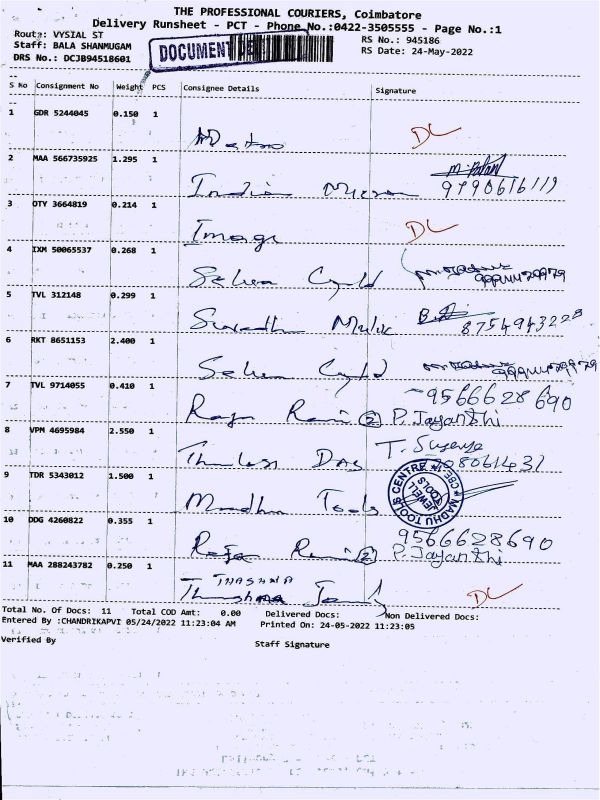 THE PROFESSIONAL COURIERS, Coimbatore
Delivery Runsheet - PCT - Phone No.:0422-3505555 - Page No.:1
Route: VYSIAL ST RS No.: 945186
Staff: BALA SHANMUGAM RS Date: 24-May-2022
DRS No.: DCJB94518601
DOCUMENT
S No Consignment No Weight PCS Consignee Details Signature
1 GDR 5244045 0.150 1
DL
2 MAA 566735925 1.295 1
India 9790616119
3 OTY 3664819 0.214 1
Image DL
4 IXM 50065537 0.268 1
5 TVL 312148 0.299 1
8754943228
6 RKT 8651153 2.400 1
7 TVL 9714055 0.410 1
9566628690
Raja Rani 2 P. Jayanthi
8 VPM 4695984 2.550 1
Thulasi Das
9 TDR 5343012 1.500 1
Madhu Tools
MADHU TOOLS CENTRE * CBE-1 *
JEWELL TOOLS
10 DDG 4260822 0.355 1
9566628690
Raja Rani 2 P. Jayanthi
11 MAA 288243782 0.250 1
DL
Total No. Of Docs: 11 Total COD Amt: 0.00 Delivered Docs: Non Delivered Docs:
Entered By :CHANDRIKAPVI 05/24/2022 11:23:04 AM Printed On: 24-05-2022 11:23:05
Verified By Staff Signature